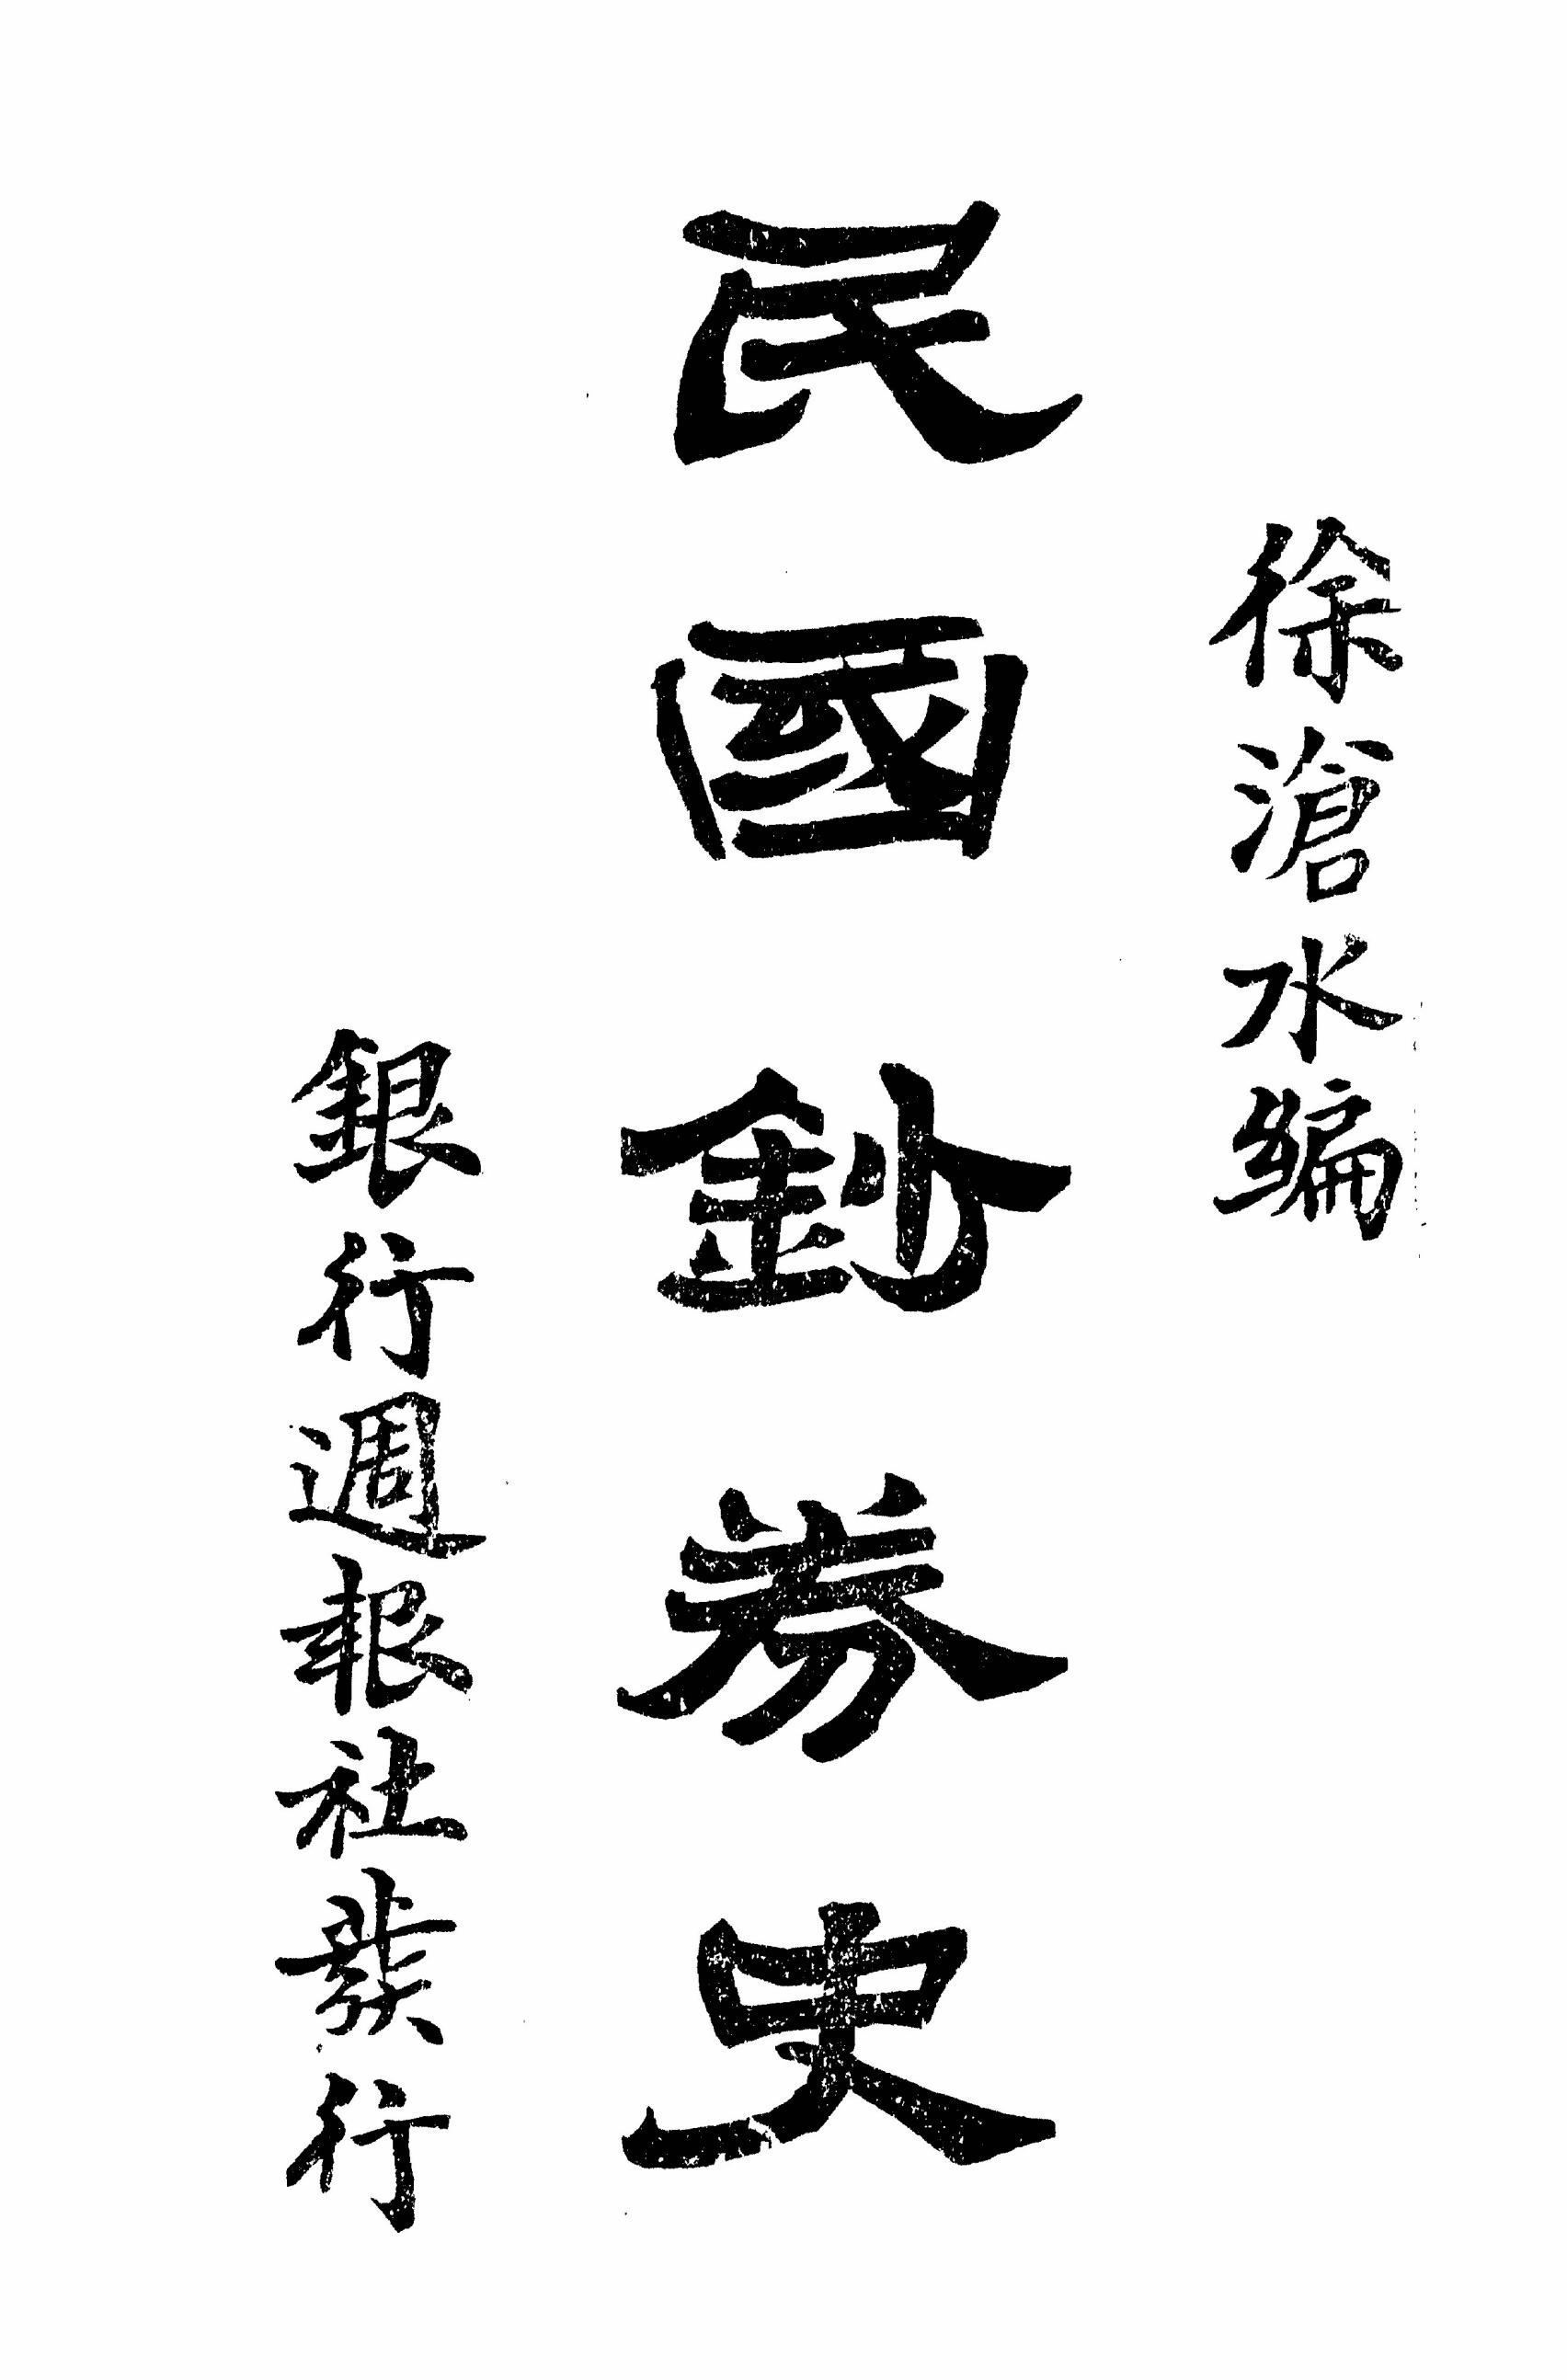 徐滄水編
民國鈔券史
銀行週報社發行